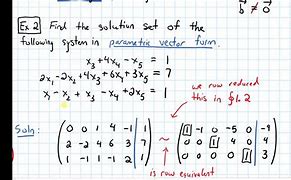 b ≠ 0
Ex 2 Find the solution set of the
following system in parametric vector form.
x₃ + 4x₄ - x₅ = 1
2x₁ - 2x₂ + 4x₃ + 6x₄ + 3x₅ = 7
x₁ - x₂ + x₃ - x₄ + 2x₅ = 1
we row reduced
this in §1.2
Soln:
0 0 1 4 -1 1 ~ 1 -1 0 -5 0 -4
2 -2 4 6 3 7 0 0 1 4 0
1 -1 1 -1 2 1 0 0 0 0 1
is row equivalent